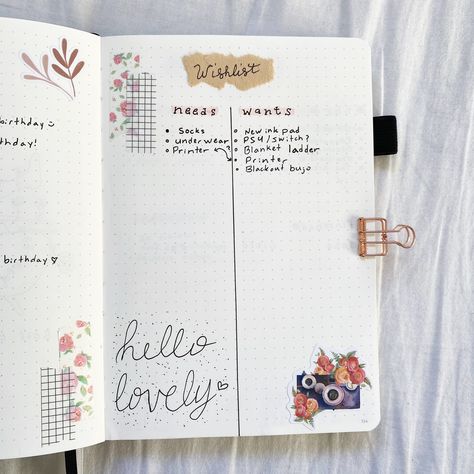 birthday
thday!
birthday ♡
Wishlist
needs
• Socks
• underwear
• Printer ?
wants
• New ink pad
• PS4/Switch?
• Blanket ladder
• Printer
• Blackout bujo
hello
lovely ♡